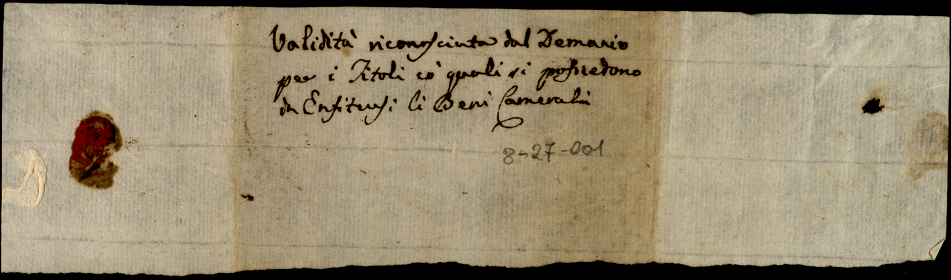 Validità riconosciuta dal Demanio
per i Titoli co' quali si possiedono
in Enfiteusi li Beni Camerali
8-27-001